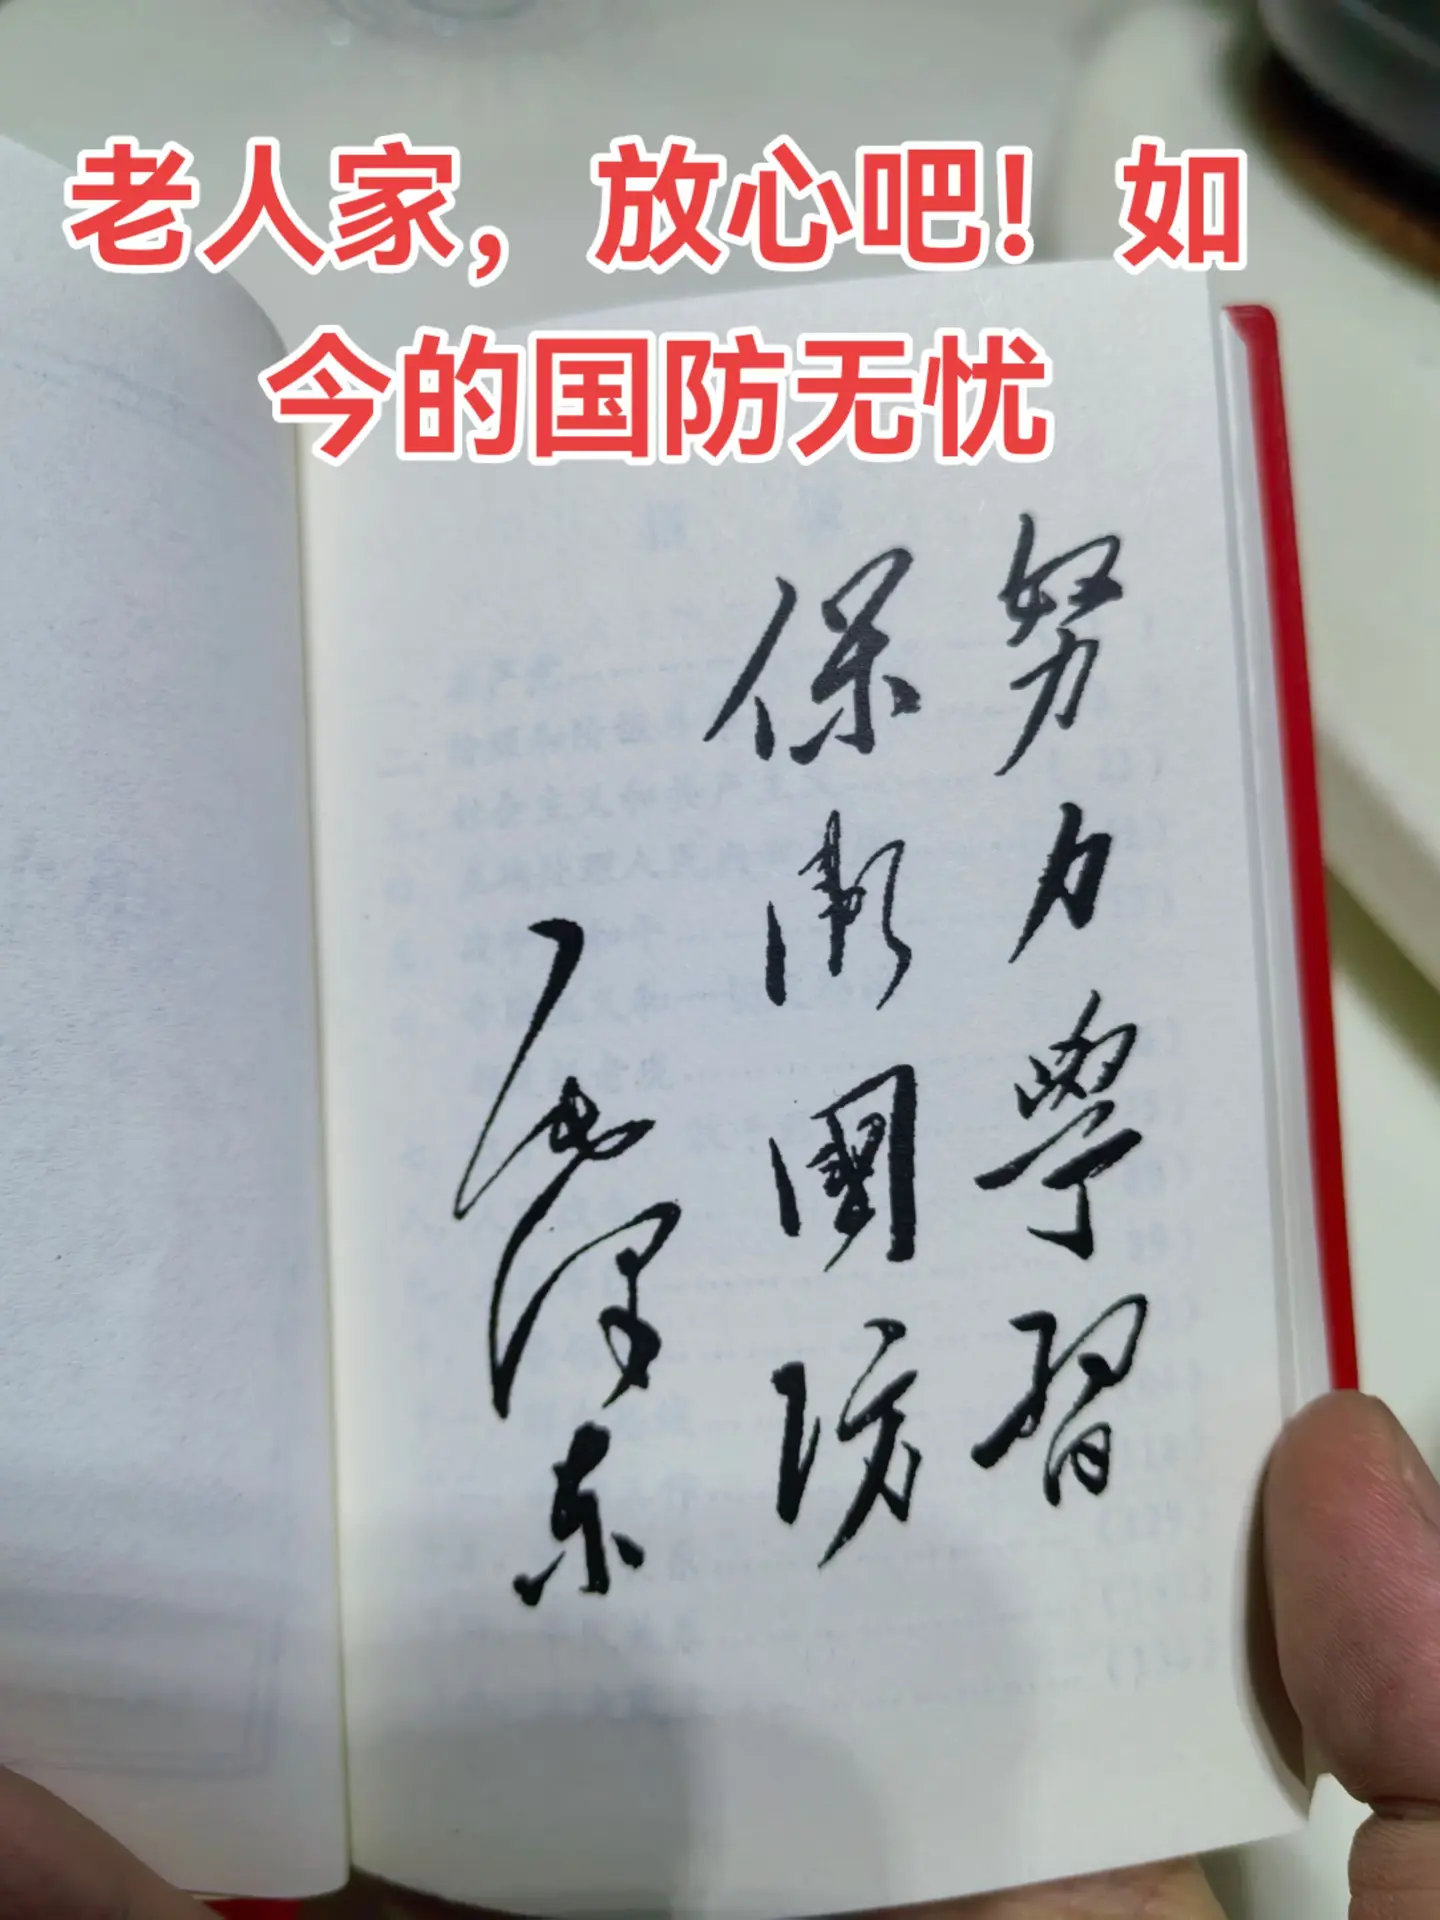 老人家，放心吧！如
今的国防无忧
努力學習
保衛國防
毛泽东